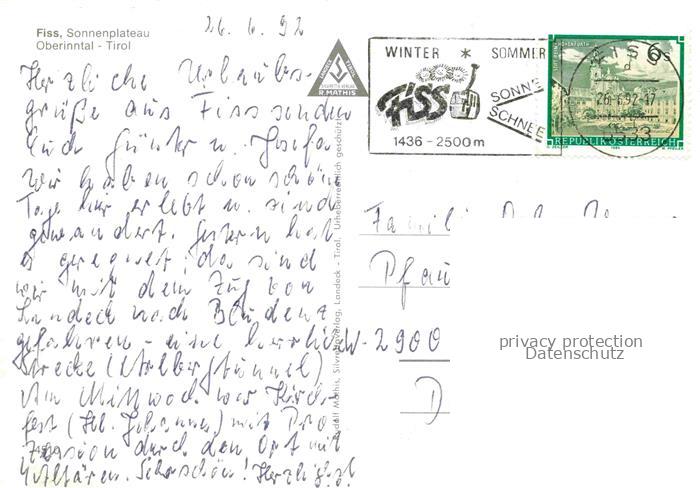 Fiss, Sonnenplateau
Oberinntal - Tirol
26. 6. 92
Herzliche Urlaubs-
grüße aus Fiss senden
Euch Günter u. Josefa
Wir haben schon schöne
Tage hier erlebt u. sind
gewandert. Gestern hat
es geregnet, da sind
wir mit dem Zug von
Landeck nach Bludenz
gefahren - eine herrliche
Strecke (Arlbergtunnel)
Am Mittwoch war Kirch-
fest (Hl. Johannes) mit Pro-
zession durch den Ort mit
4 Altären. Sehr schön! Herzlichst
R. MATHIS
Rudolf Mathis, Silvretta Verlag, Landeck - Tirol. Urheberrechtlich geschützt
WINTER * SOMMER
Fiss
SONNE
SCHNEE
1436 - 2500 m
26.6.92-17
6533
6 S
REPUBLIK ÖSTERREICH
Famili
Pfau
W-2900
D
privacy protection
Datenschutz